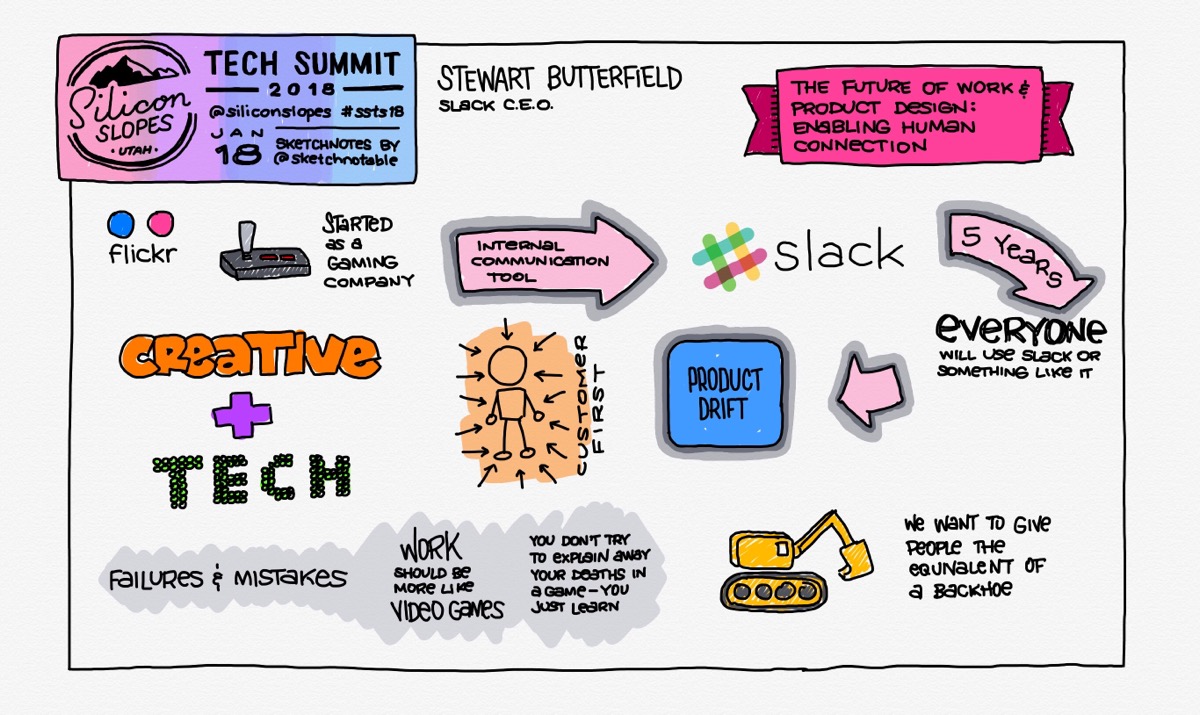 Silicon
SLOPES
• UTAH •
TECH SUMMIT
2018
@siliconslopes #ssts18
JAN
18
SKETCHNOTES BY
@sketchnotable
STEWART BUTTERFIELD
SLACK C.E.O.
THE FUTURE OF WORK &
PRODUCT DESIGN:
ENABLING HUMAN
CONNECTION
flickr
STARTED
as a
GAMING
COMPANY
INTERNAL
COMMUNICATION
TOOL
slack
5 Years
EVERYONE
WILL USE SLACK OR
SOMETHING LIKE IT
CREATIVE
+
TECH
CUSTOMER
FIRST
PRODUCT
DRIFT
FAILURES & MISTAKES
WORK
SHOULD BE
MORE LIKE
VIDEO GAMES
YOU DON'T TRY
TO EXPLAIN AWAY
YOUR DEATHS IN
a GAME - YOU
JUST LEARN
WE WANT TO GIVE
PEOPLE THE
EQUIVALENT OF
a BACKHOE